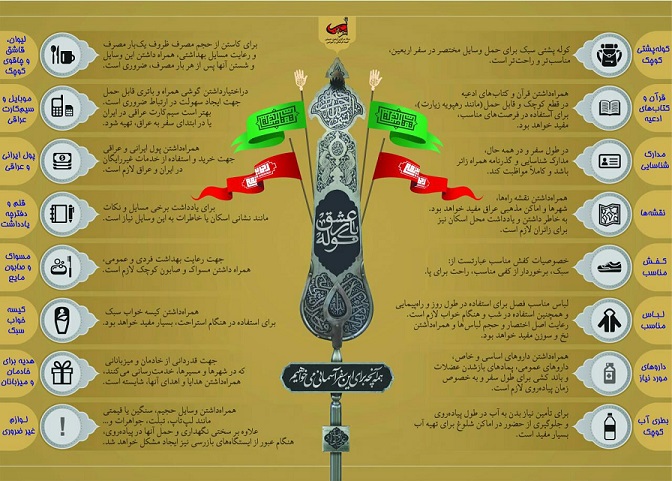 کوله‌پشتی
کوچک
کوله پشتی سبک برای حمل وسایل مختصر در سفر اربعین،
مناسب‌تر و راحت‌تر است.
قرآن و
کتاب‌های
ادعیه
همراه‌داشتن قرآن و کتاب‌های ادعیه
در قطع کوچک و قابل حمل(مانند رهپویه زیارت)،
برای استفاده در فرصت‌های مناسب،
مفید خواهد بود.
مدارک
شناسایی
در طول سفر و در همه حال،
مدارک شناسایی و گذرنامه همراه زائر
باشد و کاملاً مواظبت کند.
نقشه‌ها
همراه‌داشتن نقشه راه‌ها،
شهرها و اماکن مذهبی عراق مفید خواهد بود.
به خاطر داشتن و یادداشت محل اسکان نیز
برای زائران لازم است.
کفش
مناسب
خصوصیات کفش مناسب عبارتست از:
سبک، برخوردار از کفی مناسب، راحت برای پا.
لباس
مناسب
لباس مناسب فصل برای استفاده در طول روز و راهپیمایی
و همچنین استفاده در شب و هنگام خواب لازم است.
رعایت اصل اختصار و حجم لباس‌ها و همراه‌داشتن
نخ و سوزن مفید خواهد بود.
داروهای
مورد نیاز
همراه‌داشتن داروهای اساسی و خاص،
داروهای عمومی، پمادهای بازشدن عضلات
و باند کشی برای طول سفر و به خصوص
زمان پیاده‌روی لازم است.
بطری آب
کوچک
برای تأمین نیاز بدن به آب در طول پیاده‌روی
و جلوگیری از حضور در اماکن شلوغ برای تهیه آب
بسیار مفید است.
لیوان،
قاشق
و چاقوی
کوچک
برای کاستن از حجم مصرف ظروف یک‌بار مصرف
و رعایت مسایل بهداشتی، همراه داشتن این وسایل
و شستن آنها پس از هر بار مصرف، ضروری است.
موبایل و
سیم‌کارت
عراقی
دراختیارداشتن گوشی همراه و باتری قابل حمل
جهت ایجاد سهولت در ارتباط ضروری است.
بهتر است سیم‌کارت عراقی در ایران
یا در ابتدای سفر به عراق، تهیه شود.
پول ایرانی
و عراقی
همراه‌داشتن پول ایرانی و عراقی
جهت خرید و استفاده از خدمات غیررایگان
در ایران و عراق لازم است.
قلم و
دفترچه
یادداشت
برای یادداشت برخی مسایل و نکات
مانند نشانی اسکان یا خاطرات به این وسایل نیاز است.
مسواک
و صابون
مایع
جهت رعایت بهداشت فردی و عمومی،
همراه داشتن مسواک و صابون کوچک لازم است.
کیسه
خواب
سبک
همراه‌داشتن کیسه خواب سبک
برای استفاده در هنگام استراحت، بسیار مفید خواهد بود.
هدیه برای
خادمان
و میزبانان
جهت قدردانی از خادمان و میزبانانی
که در شهرها و مسیرها، خدمت‌رسانی می‌کنند،
همراه‌داشتن هدایا و اهدای آنها، شایسته است.
لوازم
غیر ضروری
همراه‌داشتن وسایل حجیم، سنگین یا قیمتی
مانند لپ‌تاپ، تبلت، جواهرات و...
علاوه بر سختی نگهداری و حمل آنها در پیاده‌روی،
هنگام عبور از ایستگاه‌های بازرسی نیز ایجاد مشکل خواهد شد.
کوله بار عشق
هر آنچه برای این سفر آسمانی می‌خواهیم